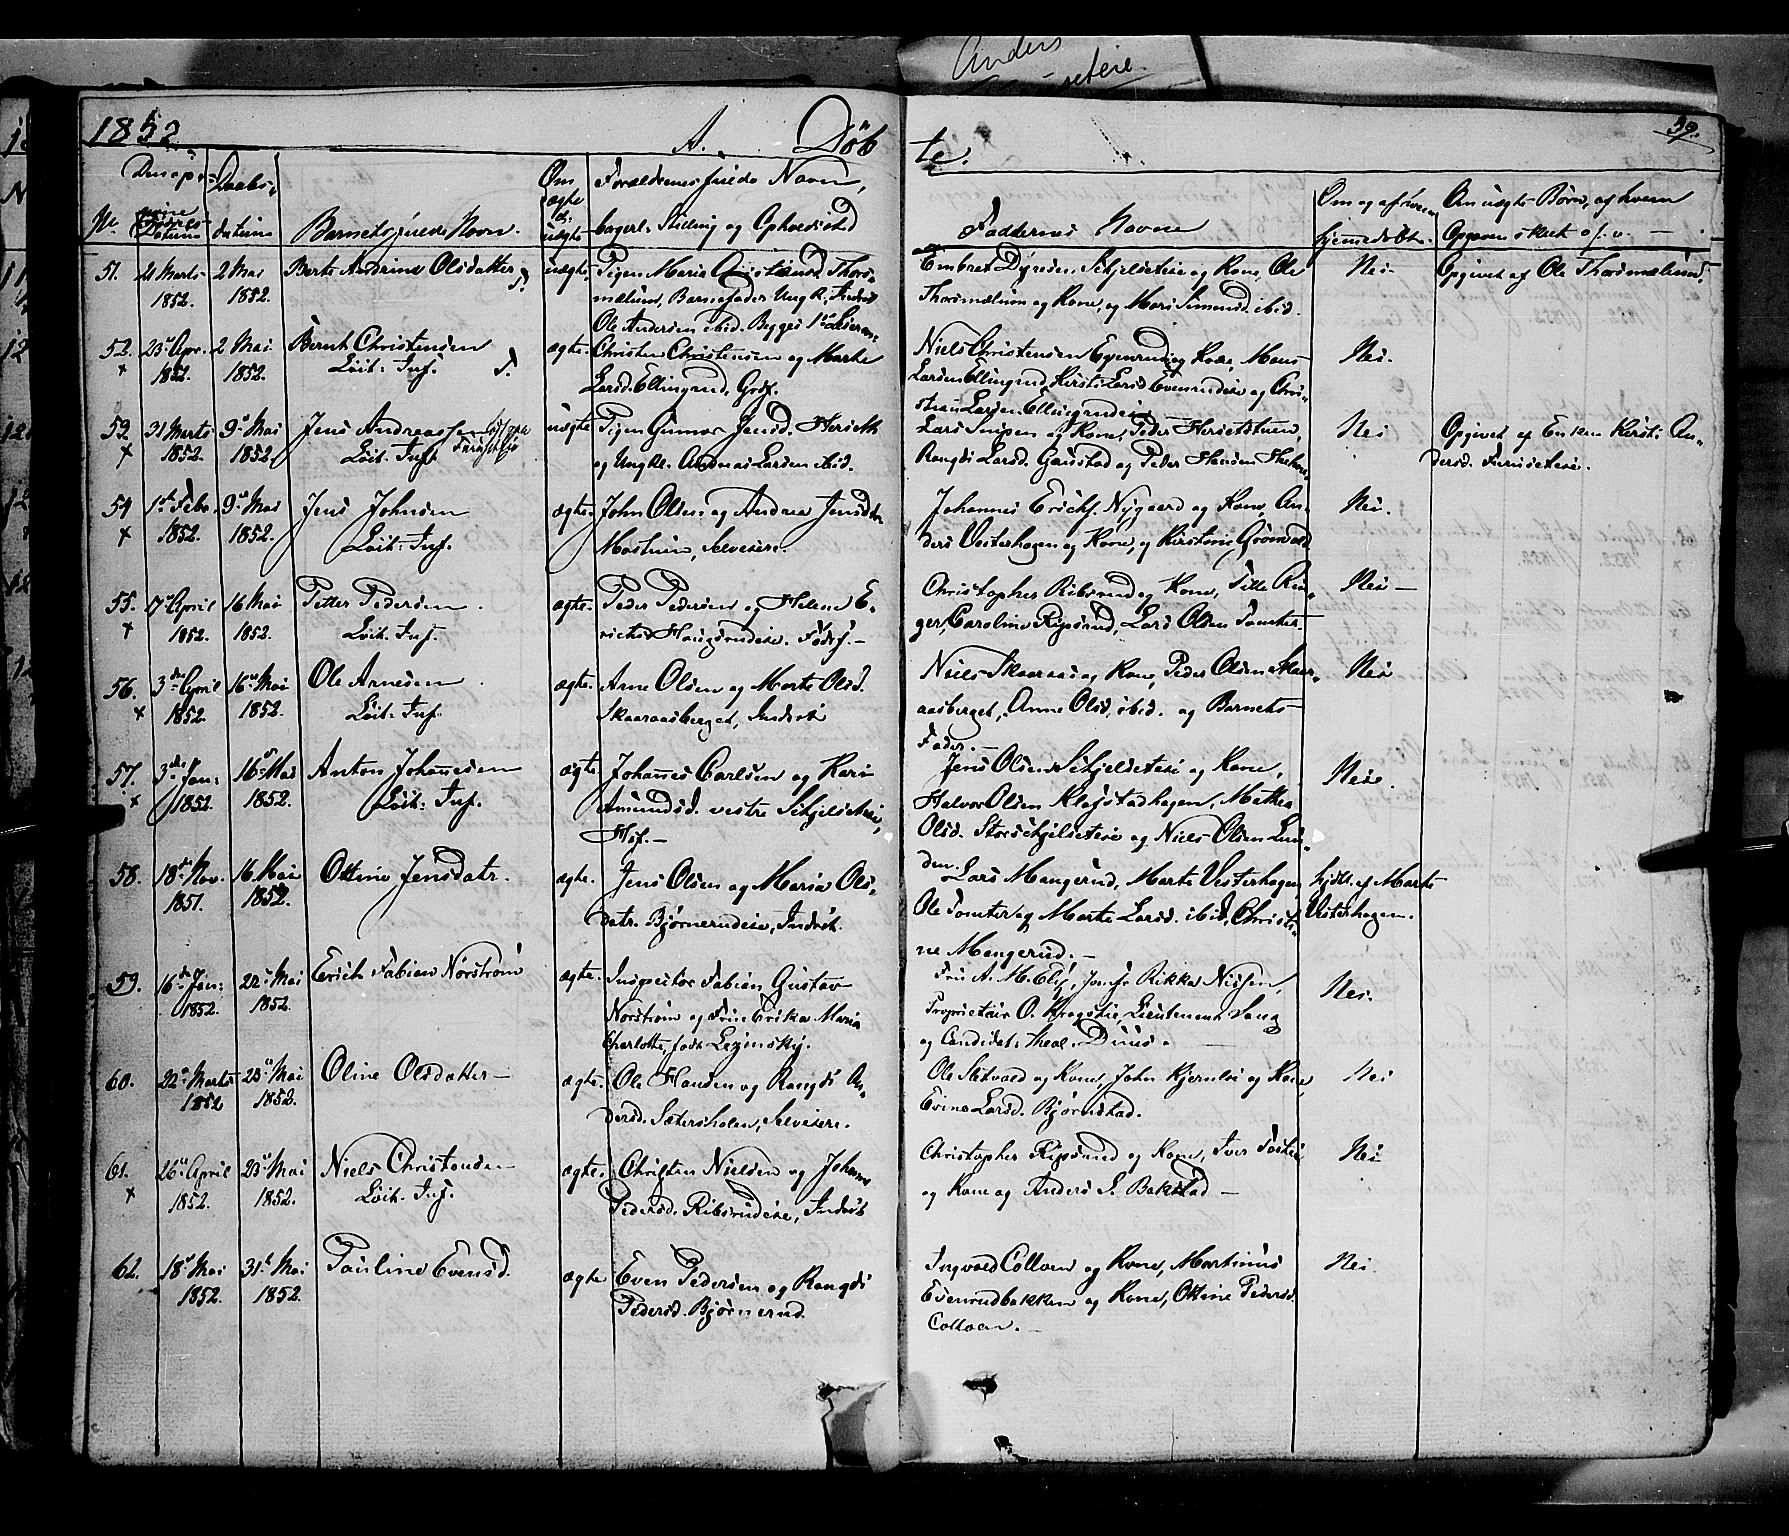 Anders
1852. A. Döb
te. 59.
Daabs-
Om Forældrenes fulde Navn,
No. Datum datum Barnets fulde Navn. ægte uægte borgerl. Stilling og Opholdssted
Faddernes Navne
hjemmedøbt. Om uægte Børn, af hvem
Opgaven skeet o. s. v.
51. 2 Marts 1852. 2 Mai 1852. Berte Andrine Olsdatter uægte. Pigen Maria Christiansd. Thors-
mælum, Barnefader Ungk.
Ole Andersen ibid.
Embret Dyreden, Skjelseteie og Kone, Ole
Thorsmælum og Kone, og Mari Simensd. ibid.
Nei. Opgivet af Ole Thorsmælum.
52. 23 Apr. 1852. 2 Mai 1852. Bernt Christensen ægte. Christen Christensen og Marte
Larsd. Ellingrud, Gdf.
Niels Christensen Evenrud og Kone, Mons
Larsen Ellingrud, Kersti Larsd. Evenrudeie og Chri-
stian Larsen Ellingrudeie
Nei.
53. 31 Marts 1852. 9 Mai 1852. Jens Andreassen uægte Pigen Gunnor Jensd. Herseth
og Ungk. Andreas Larsen ibid.
Lars Snipen og Kone, Peder Hersetstuen,
Rangdi Larsd. Gaustad og Peder Hansen
Nei Opgivet af Enken Kersti An-
dersd. Furuseteie.
54 1st Febr. 1852. 9 Mai 1852. Jens Johnsen
Löit: Inf.
ægte. John Olsen og Andrea Jensdtr
Mostuen, Selveiere.
Johannes Erichs. Nygaard og Kone, An-
ders Vesterhagen og Kone, og Kirstine Grönvold
Nei.
55. 17 April 1852. 16 Mai 1852. Petter Pedersen
Löit: Inf.
ægte. Peder Pedersen og Helene E-
richsd. Haugsrudeie.
Christopher Ribsrud og Kone, Pette Rin-
ger, Caroline Ripsrud, Lars Olsen Tomter.
Nei
56. 3die April 1852. 16 Mai 1852. Ole Arnesen
Löit: Inf.
ægte. Arne Olsen og Marte Olsd.
Skaaraasberget, Inderst
Niels Skaaraas og Kone, Peder Olsen Skaar-
aasberget, Anne Olsd. ibid. og Barnets
Fader.
Nei
57. 3die Jan: 1852. 16 Mai 1852. Anton Johannesen
Löit: Inf.
ægte Johannes Carlsen og Kari
Amundsd. vestre Skjelseteie,
Jens Olsen Skjelseteie og Kone,
Halvor Olsen Klopstadhagen, Mathea
Olsd. Storskjelseteie og Niels Olsen Lun-
den.
Nei.
58. 18de Nov. 1851. 16 Mai 1852. Ottine Jensdatr. ægte. Jens Olsen og Maria Ols-
datr. Bjørnerudeie, Inderst.
Lars Mangerud, Marte Vesterhagen
Ole Tomter og Marte Larsd. ibid, Christi-
ne Mangerud.
hjdt. af Marte
Vesterhagen.
59. 16de Jan: 1852. 22 Mai 1852. Erich Fabian Nörström ægte. Inspectör Fabian Gustav
Norström og Frue Erika Maria
Charlotte, født
Fru A. M. Jomfr. Rikka Nissen,
Proprietair O. Lieutenant Lang
og Candidat Theol.
Nei.
60. 22 Marts 1852 23 Mai 1852. Oline Olsdatter ægte. Ole Hansen og Rangdi An-
dersd. Sætersholen, Selveiere.
Ole Sletvold og Kone, John Kjernlie og Kone,
Evine Larsd. Bjørnstad.
Nei
61. 26 April 1852. 23 Mai 1852. Niels Christensen
Löit. Inf.
ægte. Christen Nielsen og Johanne
Pedersd. Ribsrudeie, Inderst
Christopher Ripsrud og Kone, Iver
og Kone og Anders S. Bakstad
Nei
62. 18 Mai 1852. 31 Mai 1852. Pauline Evensd. ægte Even Pedersen og Rangdi
Pedersd. Bjørnerud.
Ingvald Colloen og Kone, Martinus
Evenrudbakken og Kone, Ottine Pedersd.
Colloen.
Nei.